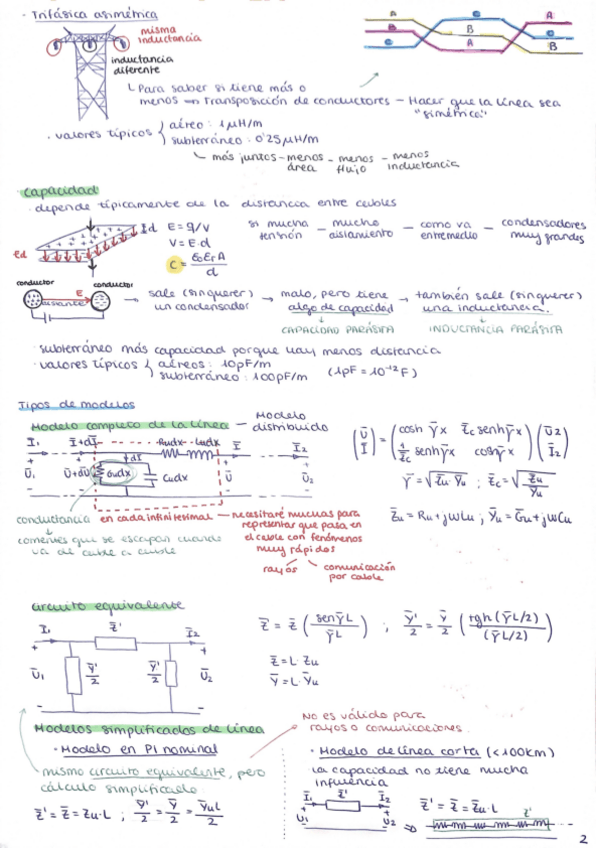 · Trifásica asimétrica
misma
inductancia
inductancia
diferente
A C A
C B B
B A C
Para saber si tiene más o
menos → Transposición de conductores – Hacer que la línea sea
"simétrica"
· valores típicos { aéreo: 1 µH/m
subterráneo: 0'25 µH/m
más juntos – menos área – menos flujo – menos inductancia
· Capacidad
· depende típicamente de la distancia entre cables
Ed
d
E = q/V
V = E·d
C = ε₀εrA / d
si mucha tensión – mucho aislamiento – como va entremedio – condensadores muy grandes
conductor E conductor
distante
→ sale (sin querer) un condensador → malo, pero tiene algo de capacidad → también sale (sin querer) una inductancia.
CAPACIDAD PARÁSITA
INDUCTANCIA PARÁSITA
· subterráneo más capacidad porque hay menos distancia
· valores típicos { aéreos: 10pF/m
subterráneo: 100pF/m
(1pF = 10⁻¹² F)
Tipos de modelos
Modelo completo de la línea – Modelo distribuido
Ī₁ Ī+dĪ Rudx Ludx Ī Ī₂
Ū₁ Ū+dŪ Gudx dI Cudx Ū Ū₂
(Ū Ī) = (cosh γ̄x z̄c senh γ̄x 1/z̄c senh γ̄x cosh γ̄x) (Ū2 Ī2)
γ̄ = √(z̄u·ȳu) ; z̄c = √(z̄u/ȳu)
z̄u = Ru + jωLu ; ȳu = Gu + jωCu
conductancia
corrientes que se escapan cuando
va de cable a cable
en cada infinitesimal – necesitaré muchas para
representar que pasa en
el cable con fenómenos
muy rápidos
rayos comunicación
por cable
circuito equivalente
Ī₁ z̄' Ī₂
Ū₁ ȳ'/2 ȳ'/2 Ū₂
z̄ = z̄ (senγ̄L / γ̄L) ; ȳ'/2 = ȳ/2 (tgh(γ̄L/2) / (γ̄L/2))
z̄ = L·z̄u
ȳ = L·ȳu
Modelos simplificados de línea
No es válido para
rayos o comunicaciones.
· Modelo en PI nominal
mismo circuito equivalente, pero
cálculo simplificado.
z̄' = z̄ = z̄u·L ; ȳ'/2 = ȳ/2 = ȳuL/2
· Modelo de línea corta (<100km)
La capacidad no tiene mucha
influencia
Ī₁ z̄' Ī₂
Ū₁ Ū₂
z̄' = z̄ = z̄u·L
z'
2